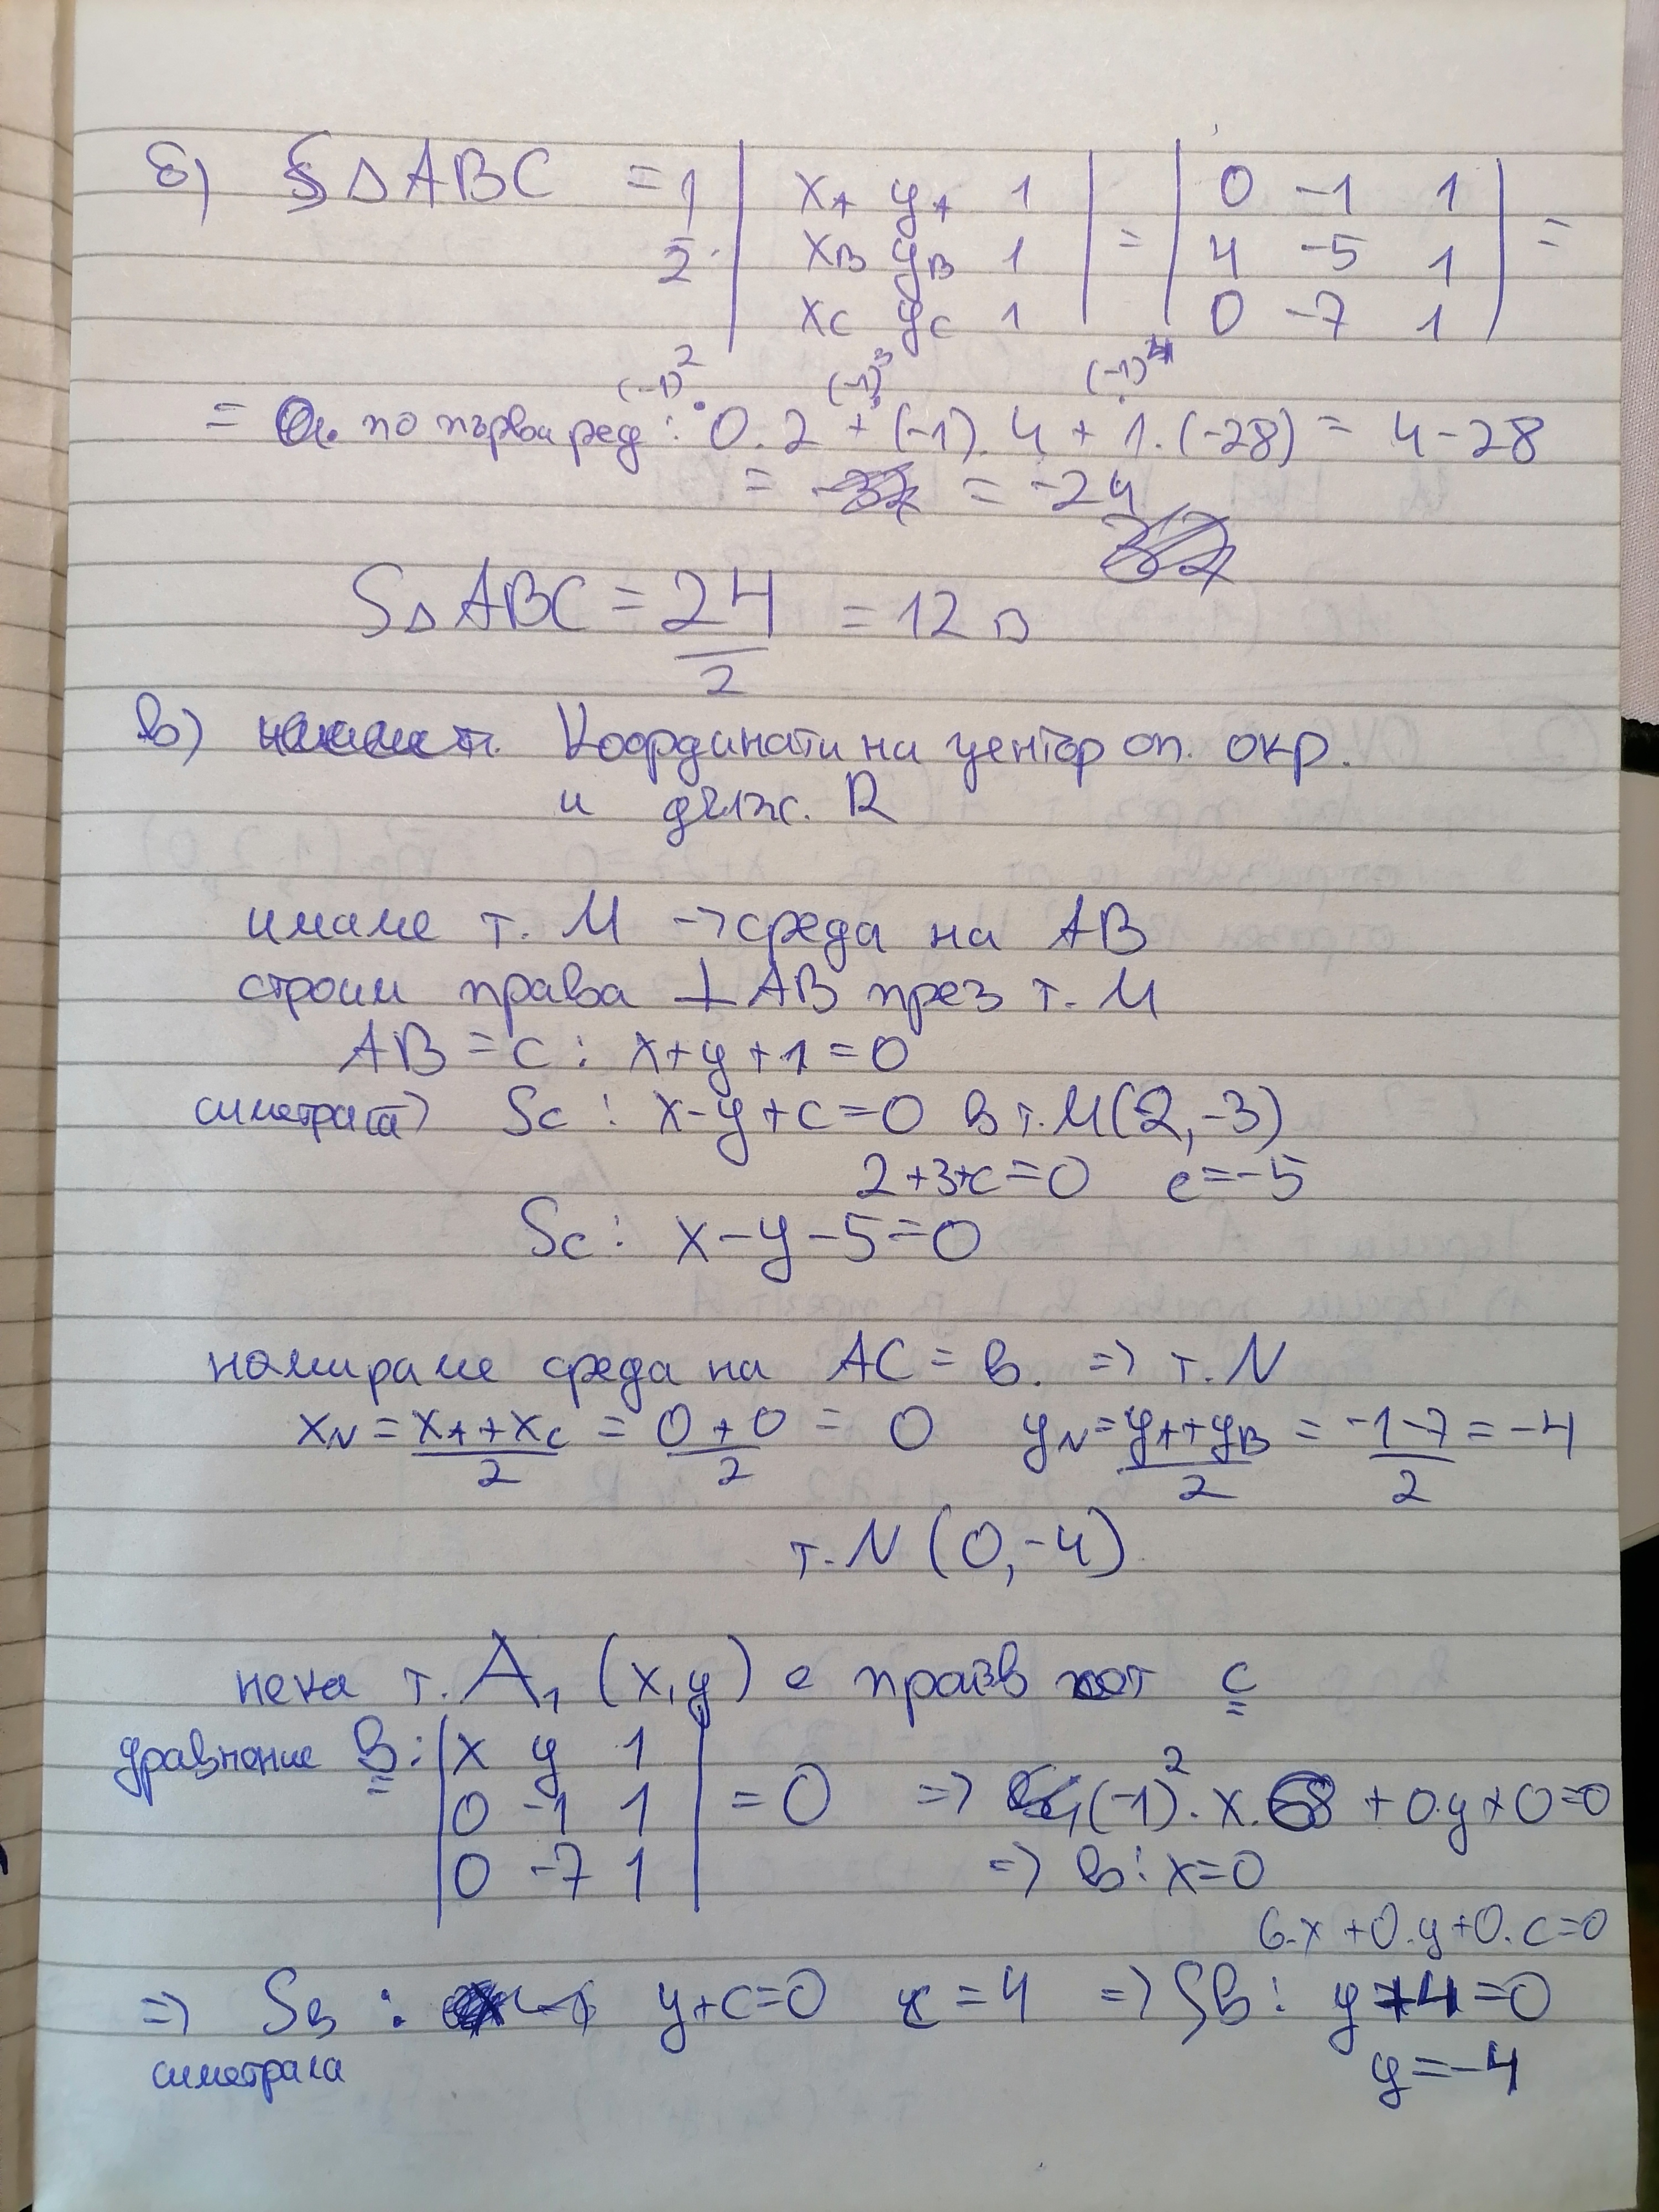 б) S△ABC = 1/2 · | xA yA 1 | = | 0 -1 1 | =
| xB yB 1 | | 4 -5 1 |
| xC yC 1 | | 0 -7 1 |
(-1)² (-1)³ (-1)⁴
= по първи ред: · 0.2 + (-1).4 + 1.(-28) = 4-28
= = -24
S△ABC = 24/2 = 12
в) Координати на център оп. окр.
и дълж. R
имаме т. M → среда на AB
строим права ⊥ AB през т. M
AB = c : x+y+1=0
симетрала Sc : x-y+c=0 в т. M(2,-3)
2+3+c=0 c=-5
Sc : x-y-5=0
намираме среда на AC = в. => т. N
xN = xA+xC/2 = 0+0/2 = 0 yN = yA+yB/2 = -1-7/2 = -4
т. N (0,-4)
нека т. A₁ (x,y) е произв от c
уравнение в: | x y 1 |
| 0 -1 1 | = 0 => (-1)².x.6 + 0.y+0=0
| 0 -7 1 | => в: x=0
6.x+0.y+0.c=0
=> Sв : y+c=0 c=4 => Sв: y+4=0
симетрала y=-4